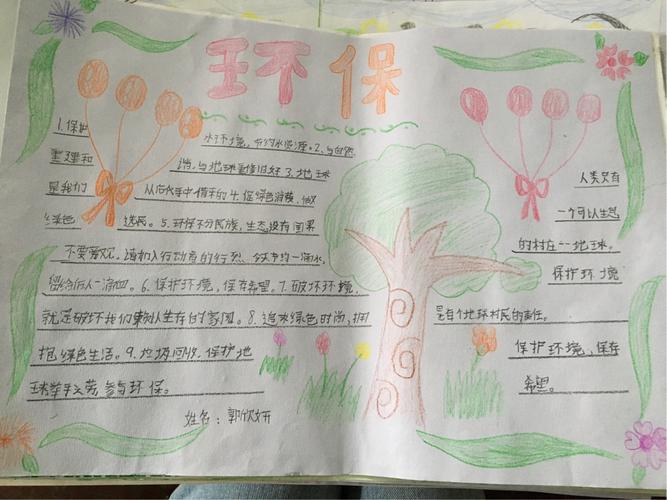 环保
1.保护
水环境,节约水资源。2.与自然
重建和
谐,与地球重修旧好 3.地球
是我们
从后代手中借来的 4.促绿色消费,做
绿色
选民。5.环保不分民族,生态没有国界
不要旁观,请加入行动者的行列
留给后人一滴血。6.保护环境,保存希望。7.破坏环境,
就是破坏我们赖以生存的家园。8.追求绿色时尚,拥
抱绿色生活。9.垃圾回收,保护地
球举手之劳参与环保。
姓名:郭欣妍
人类只有
一个可以生息
的村庄一地球。
保护环境
是每个地球村民的责任。
保护环境,保存
希望。